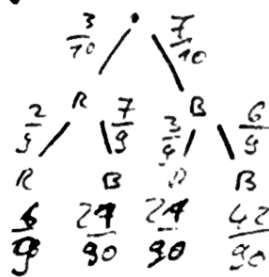 3/10 7/10
R B
2/9 7/9 3/9 6/9
R B R B
6/90 21/90 21/90 42/90